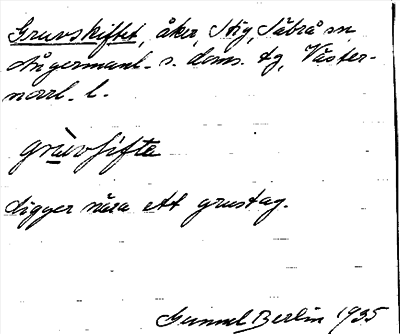 Gruvskiftet, åker, Stig, Säbrå sn
Ångermanl. s. doms. tg, Väster-
norrl. l.
grùvʃifte
Ligger nära ett grustag.
Gunnel Berlin 1935